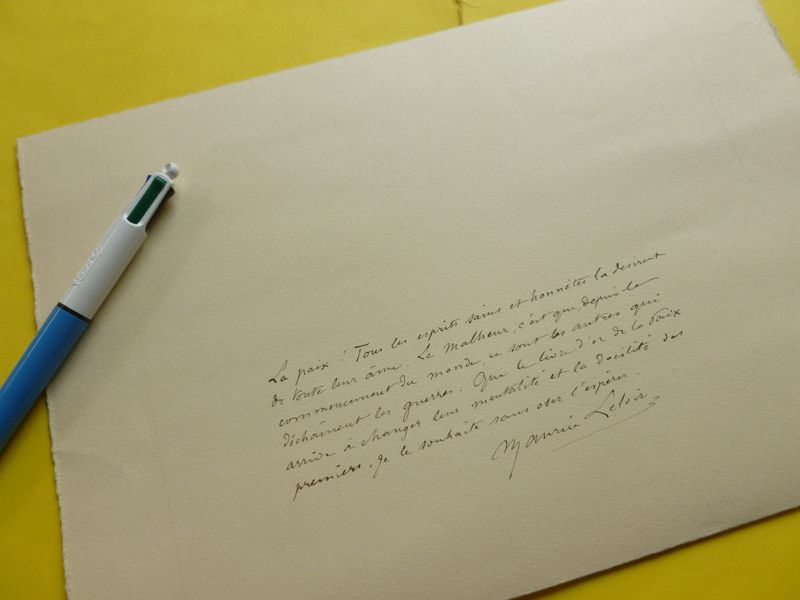 La paix ! Tous les esprits sains et honnêtes la désirent
de toute leur âme. Le Malheur, c'est que, depuis le
commencement du monde, ce sont les autres qui
déchaînent les guerres. Que le livre d'or de la Paix
arrive à changer leur mentalité et la docilité des
premiers. Je le souhaite sans oser l'espérer.
Maurice Leloir
BIC